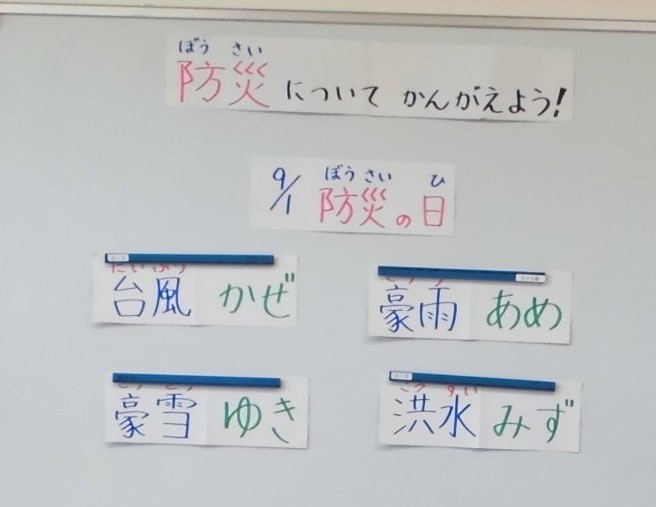 ぼう さい
防災 について かんがえよう!
ぼう さい ひ
9/1 防災の日
たいふう
台風 かぜ
豪雨 あめ
豪雪 ゆき
こうずい
洪水 みず